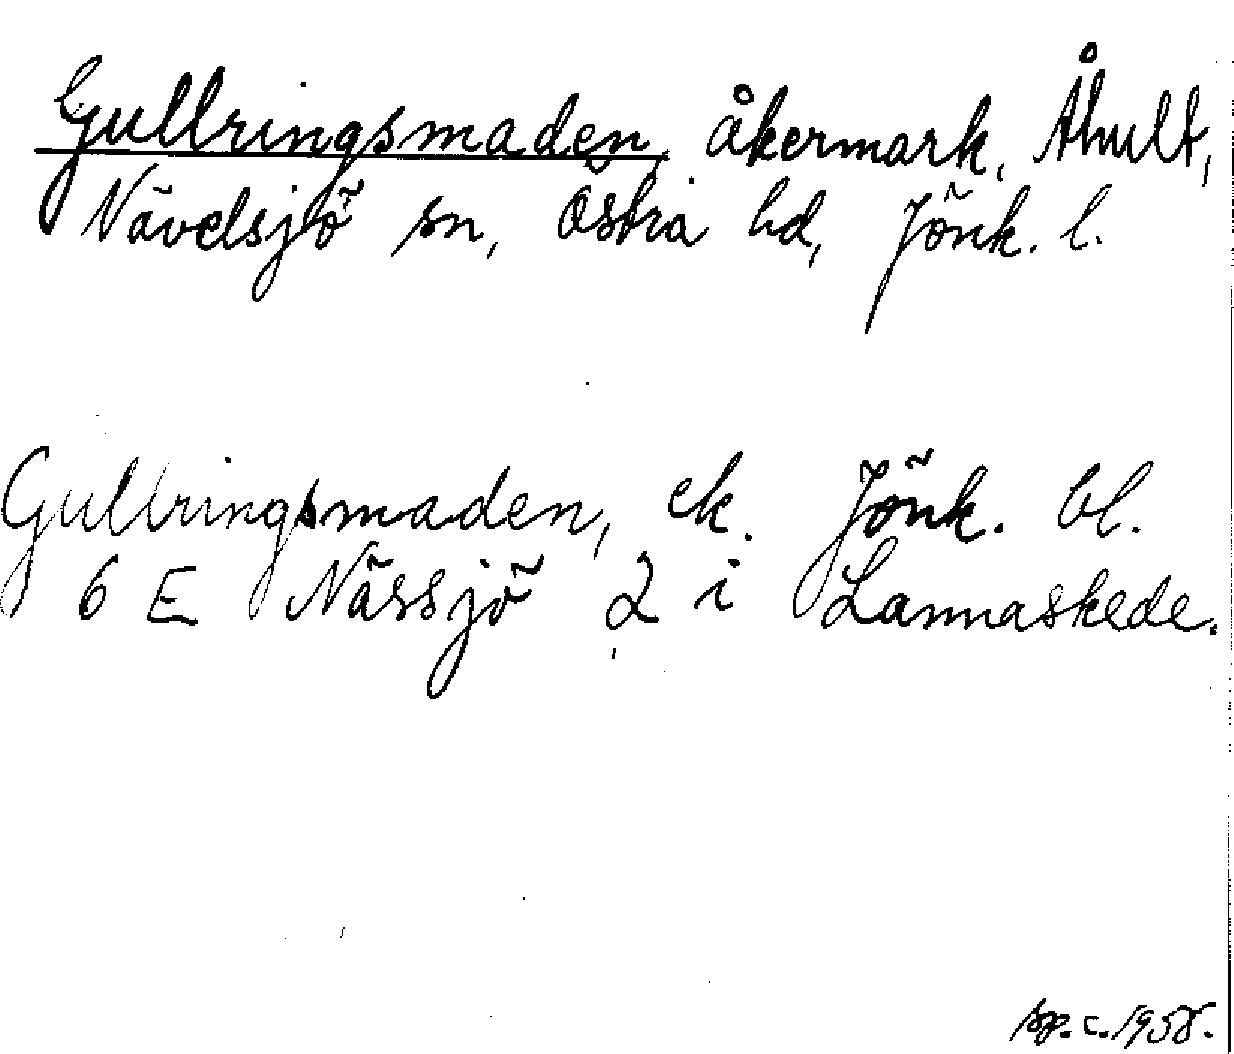 Gullringsmaden, åkermark, Åhult,
Nävelsjö sn, Östra hd, Jönk. l.
Gullringsmaden, ek. Jönk. bl.
6 E Nässjö 2 i Lannaskede.
sp. c. 1958.